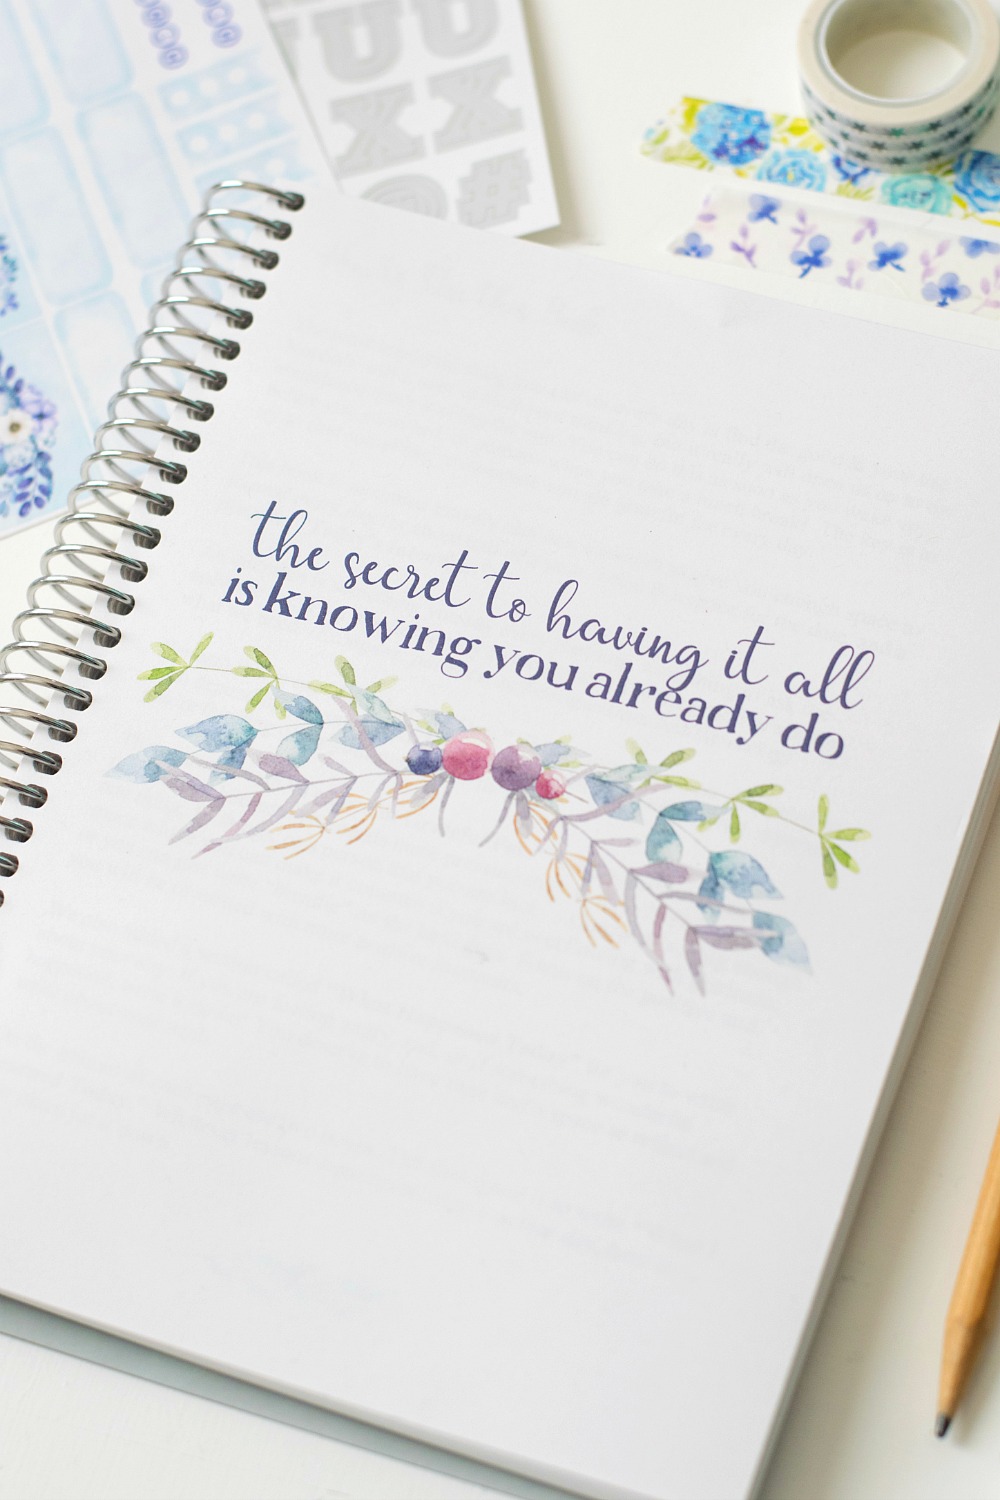 UX
UX
#
the secret to having it all
is knowing you already do